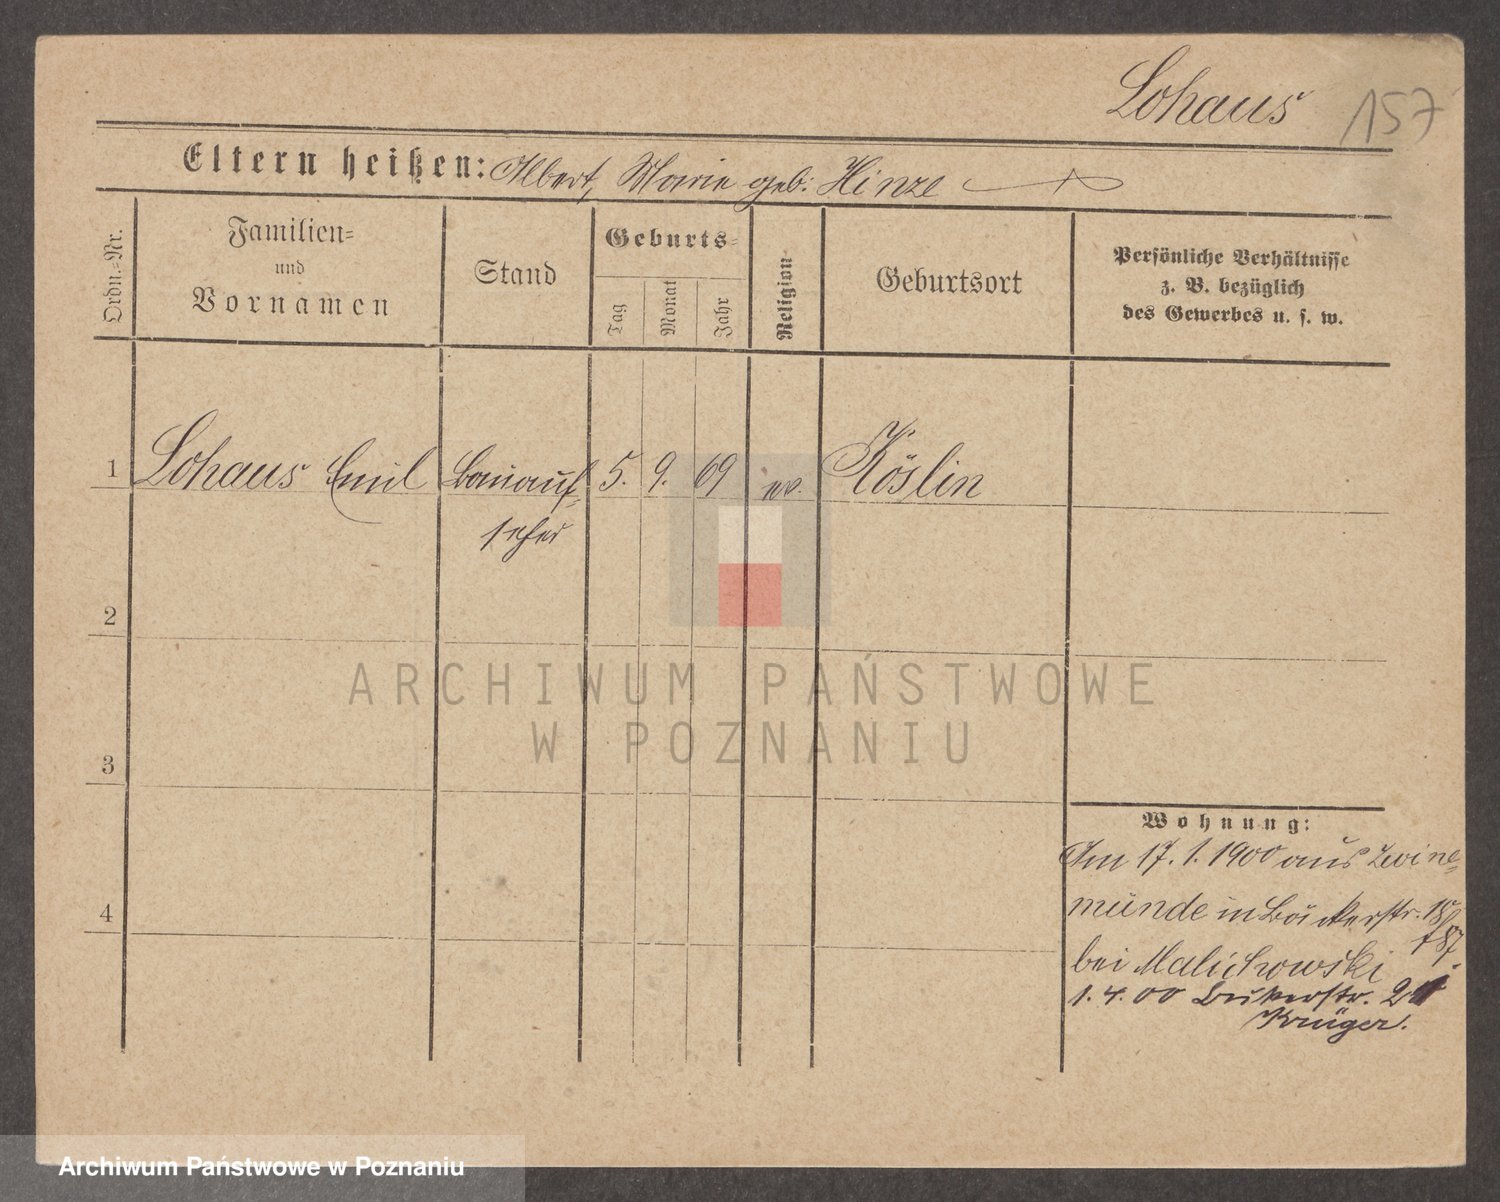 Lohaus 157
Eltern heißen: Albert, Marie geb. Hinze
Ordn.=Nr.
Familien=
und
Vornamen
Stand
Geburts=
Tag
Monat
Jahr
Religion
Geburtsort
Persönliche Verhältnisse
z. B. bezüglich
des Gewerbes u. s. w.
1 Lohaus Emil Bauauf= 5. 9. 69 ev. Köslin
seher
2
ARCHIWUM PAŃSTWOWE
W POZNANIU
3
Wohnung:
Am 17. 1. 1900 aus Swine=
münde in Bäckerstr.
4
bei Malichowski
1. 4. 00
Krüger.
Archiwum Państwowe w Poznaniu